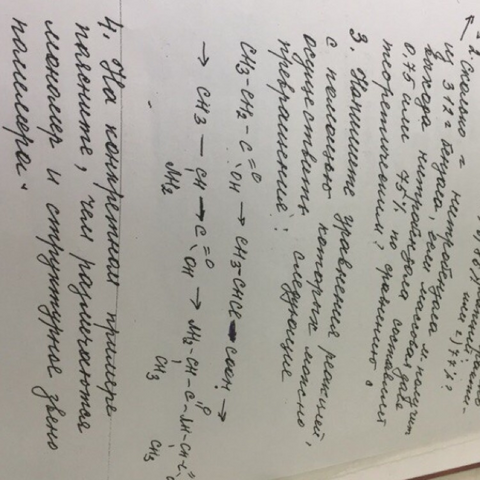 2. Сколько г нитробензола м. получить
из 312 г бензола, если массовая доля
выхода нитробензола составит
0,75 или 75% по сравнению с
теоретическим?
3. Напишите уравнения реакций,
с помощью которых можно
осуществить следующие
превращения:
CH3-CH2-C=O
OH → CH3-CHCl-COOH →
→ CH3 — CH → C=O
NH2 OH → NH2-CH-C-NH-CH-C=O
CH3 O CH3
4. На конкретном примере
поясните, чем различаются
мономер и структурное звено
полимера.